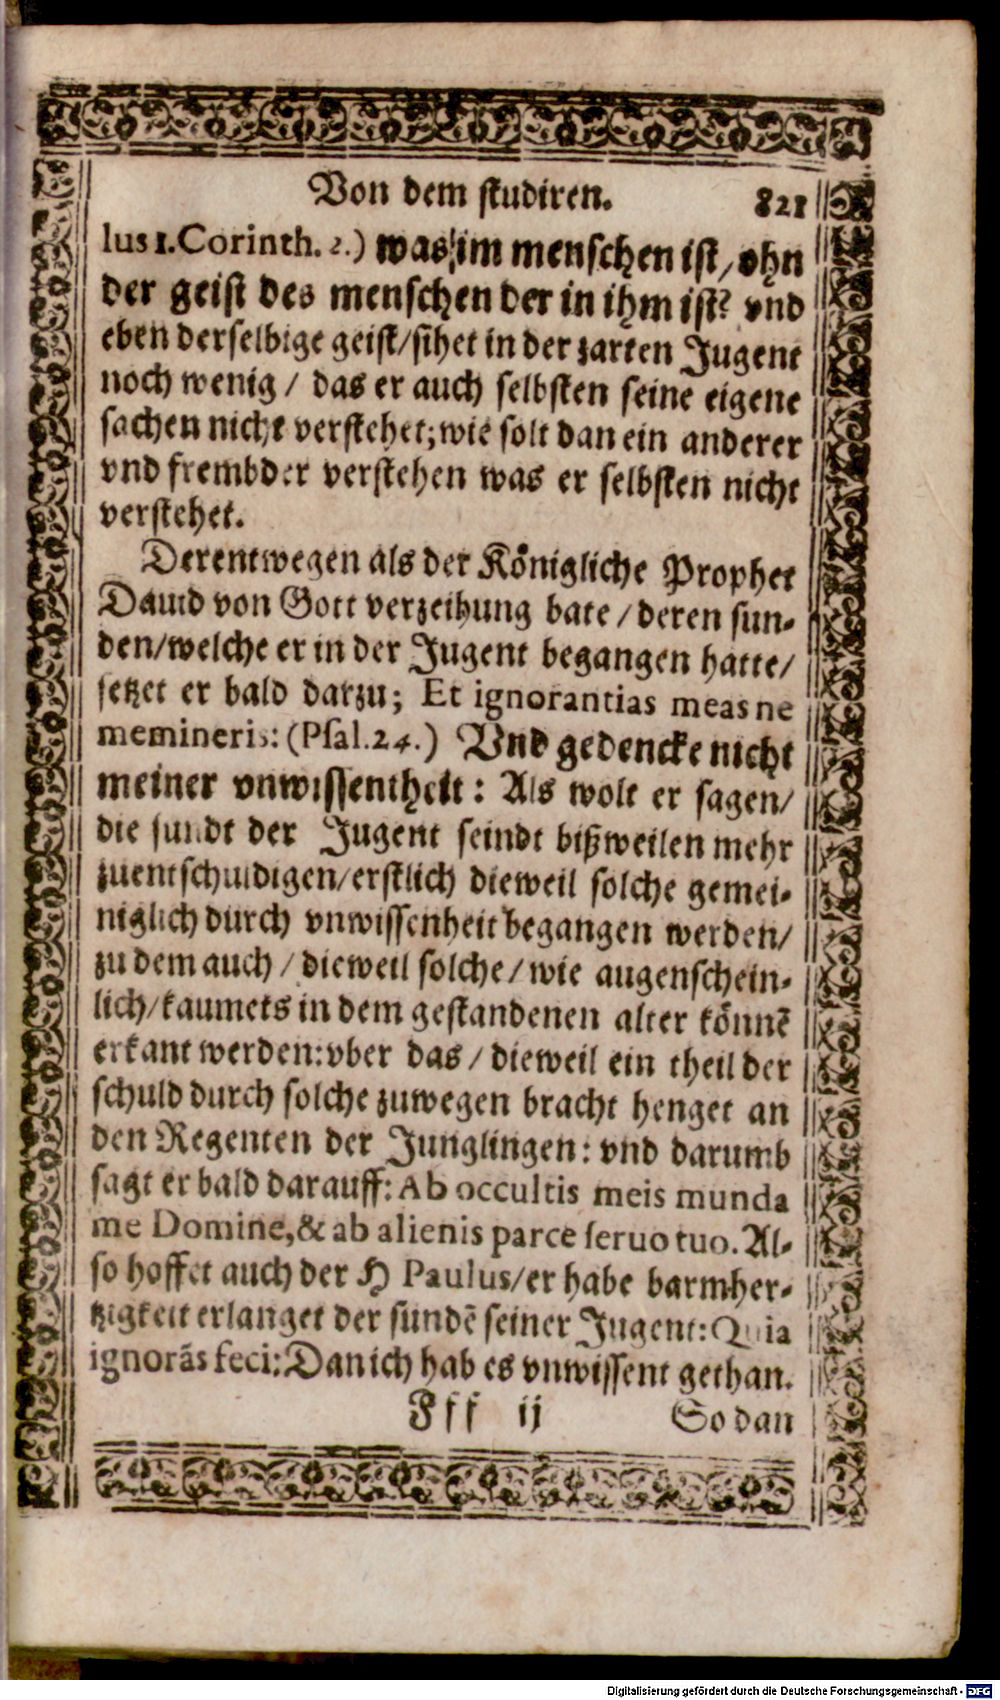 Von dem studiren. 821
lus 1. Corinth. 2.) was im menschen ist / ohn
der geist des menschen der in ihm ist? vnd
eben derselbige geist / sihet in der zarten Jugent
noch wenig / das er auch selbsten seine eigene
sachen nicht verstehet; wie solt dan ein anderer
vnd frembder verstehen was er selbsten nicht
verstehet.
Derentwegen als der Königliche Prophet
Dauid von Gott verzeihung bate / deren sun-
den / welche er in der Jugent begangen hatte /
setzet er bald darzu; Et ignorantias meas ne
memineris: (Psal. 24.) Vnd gedencke nicht
meiner vnwissentheit: Als wolt er sagen /
die sundt der Jugent seindt bißweilen mehr
zuentschuldigen / erstlich dieweil solche gemei-
niglich durch vnwissenheit begangen werden /
zu dem auch / dieweil solche / wie augenschein-
lich / kaumets in dem gestandenen alter könnē
erkant werden: vber das / dieweil ein theil der
schuld durch solche zuwegen bracht henget an
den Regenten der Junglingen: vnd darumb
sagt er bald darauff: Ab occultis meis munda
me Domine, & ab alienis parce seruo tuo. Al-
so hoffet auch der H Paulus / er habe barmher-
tzigkeit erlanget der sundē seiner Jugent: Quia
ignorãs feci: Dan ich hab es vnwissent gethan.
Fff ij So dan
Digitalisierung gefördert durch die Deutsche Forschungsgemeinschaft - DFG